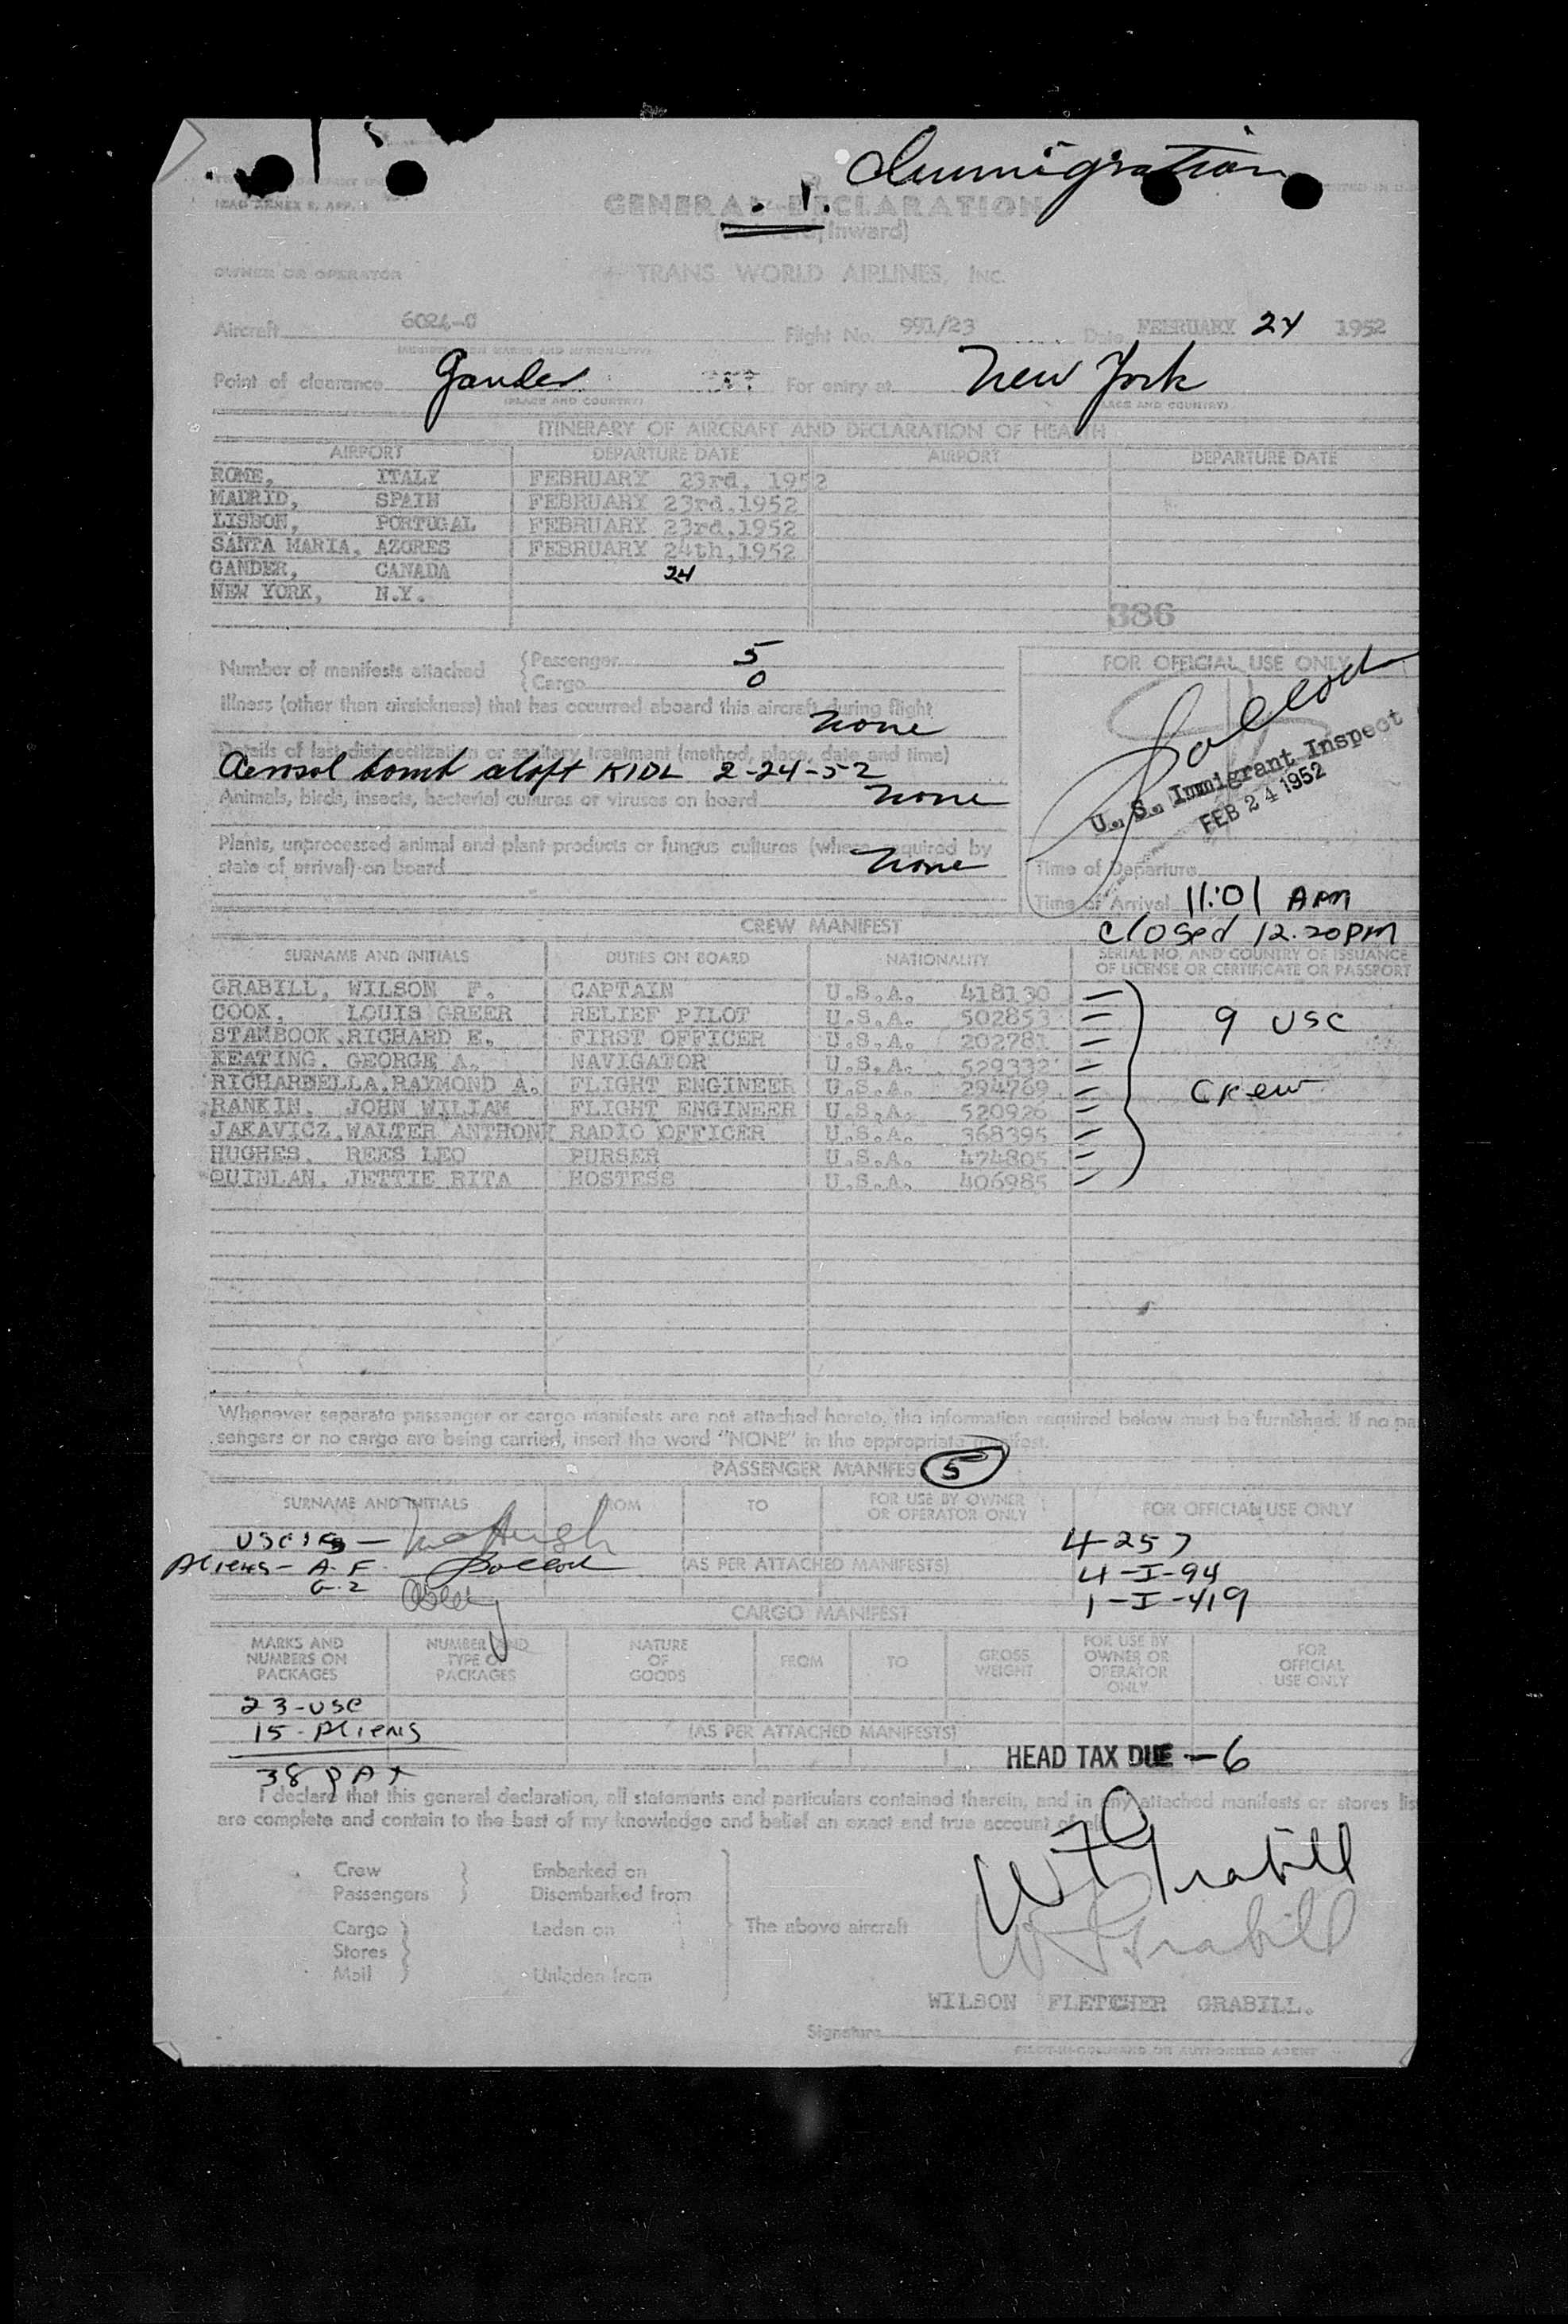 Immigration
ICAO ANNEX 9, APP. 1
GENERAL DECLARATION
Inward)
OWNER OR OPERATOR TRANS WORLD AIRLINES, INC.
Aircraft 6024-C Flight No. 991/23 Date FEBRUARY 24 1952
Point of clearance Gander For entry at New York
(PLACE AND COUNTRY) (PLACE AND COUNTRY)
ITINERARY OF AIRCRAFT AND DECLARATION OF HEALTH
AIRPORT DEPARTURE DATE AIRPORT DEPARTURE DATE
ROME, ITALY FEBRUARY 23rd, 1952
MADRID, SPAIN FEBRUARY 23rd,1952
LISBON, PORTUGAL FEBRUARY 23rd,1952
SANTA MARIA, AZORES FEBRUARY 24th,1952
GANDER, CANADA 24
NEW YORK, N.Y.
386
Number of manifests attached {Passenger 5
{Cargo 0
Illness (other than airsickness) that has occurred aboard this aircraft during flight
None
Details of last disinsectization or sanitary treatment (method, place, date and time)
Aerosol bomb aloft KIDL 2-24-52
Animals, birds, insects, bacterial cultures or viruses on board None
Plants, unprocessed animal and plant products or fungus cultures (where required by
state of arrival) on board None
FOR OFFICIAL USE ONLY
U. S. Immigrant Inspect
FEB 24 1952
Time of Departure
Time of Arrival 11:01 AM
Closed 12.20PM
CREW MANIFEST
SURNAME AND INITIALS DUTIES ON BOARD NATIONALITY SERIAL NO. AND COUNTRY OF ISSUANCE
OF LICENSE OR CERTIFICATE OR PASSPORT
GRABILL, WILSON F. CAPTAIN U.S.A. 418130
COOK, LOUIS GREER RELIEF PILOT U.S.A. 502853
STAMBOOK,RICHARD E. FIRST OFFICER U.S.A. 202781
KEATING, GEORGE A. NAVIGATOR U.S.A. 529332
RICHARDELLA,RAYMOND A. FLIGHT ENGINEER U.S.A. 294769
RANKIN, JOHN WILIAM FLIGHT ENGINEER U.S.A. 520926
JAKAVICZ,WALTER ANTHONY RADIO OFFICER U.S.A. 368395
HUGHES, REES LEO PURSER U.S.A. 474805
QUINLAN, JETTIE RITA HOSTESS U.S.A. 406985
9 USC
Crew
Whenever separate passenger or cargo manifests are not attached hereto, the information required below must be furnished. If no pa
sengers or no cargo are being carried, insert the word "NONE" in the appropriate manifest.
PASSENGER MANIFES 5
SURNAME AND INITIALS FROM TO FOR USE BY OWNER
OR OPERATOR ONLY FOR OFFICIAL USE ONLY
4-257
Aliens- A-F (AS PER ATTACHED MANIFESTS) 4-I-94
G-Z 1-I-419
CARGO MANIFEST
MARKS AND
NUMBERS ON
PACKAGES NUMBER AND
TYPE OF
PACKAGES NATURE
OF
GOODS FROM TO GROSS
WEIGHT FOR USE BY
OWNER OR
OPERATOR
ONLY FOR
OFFICIAL
USE ONLY
23-USC
15-Aliens (AS PER ATTACHED MANIFESTS)
38 PAX
HEAD TAX DUE -6
I declare that this general declaration, all statements and particulars contained therein, and in any attached manifests or stores lis
are complete and contain to the best of my knowledge and belief an exact and true account of all
Crew } Embarked on
Passengers } Disembarked from
Cargo } Laden on The above aircraft
Stores
Mail } Unladen from
WF Grabill
WF Grabill
WILSON FLETCHER GRABILL.
Signature
PILOT-IN-COMMAND OR AUTHORISED AGENT